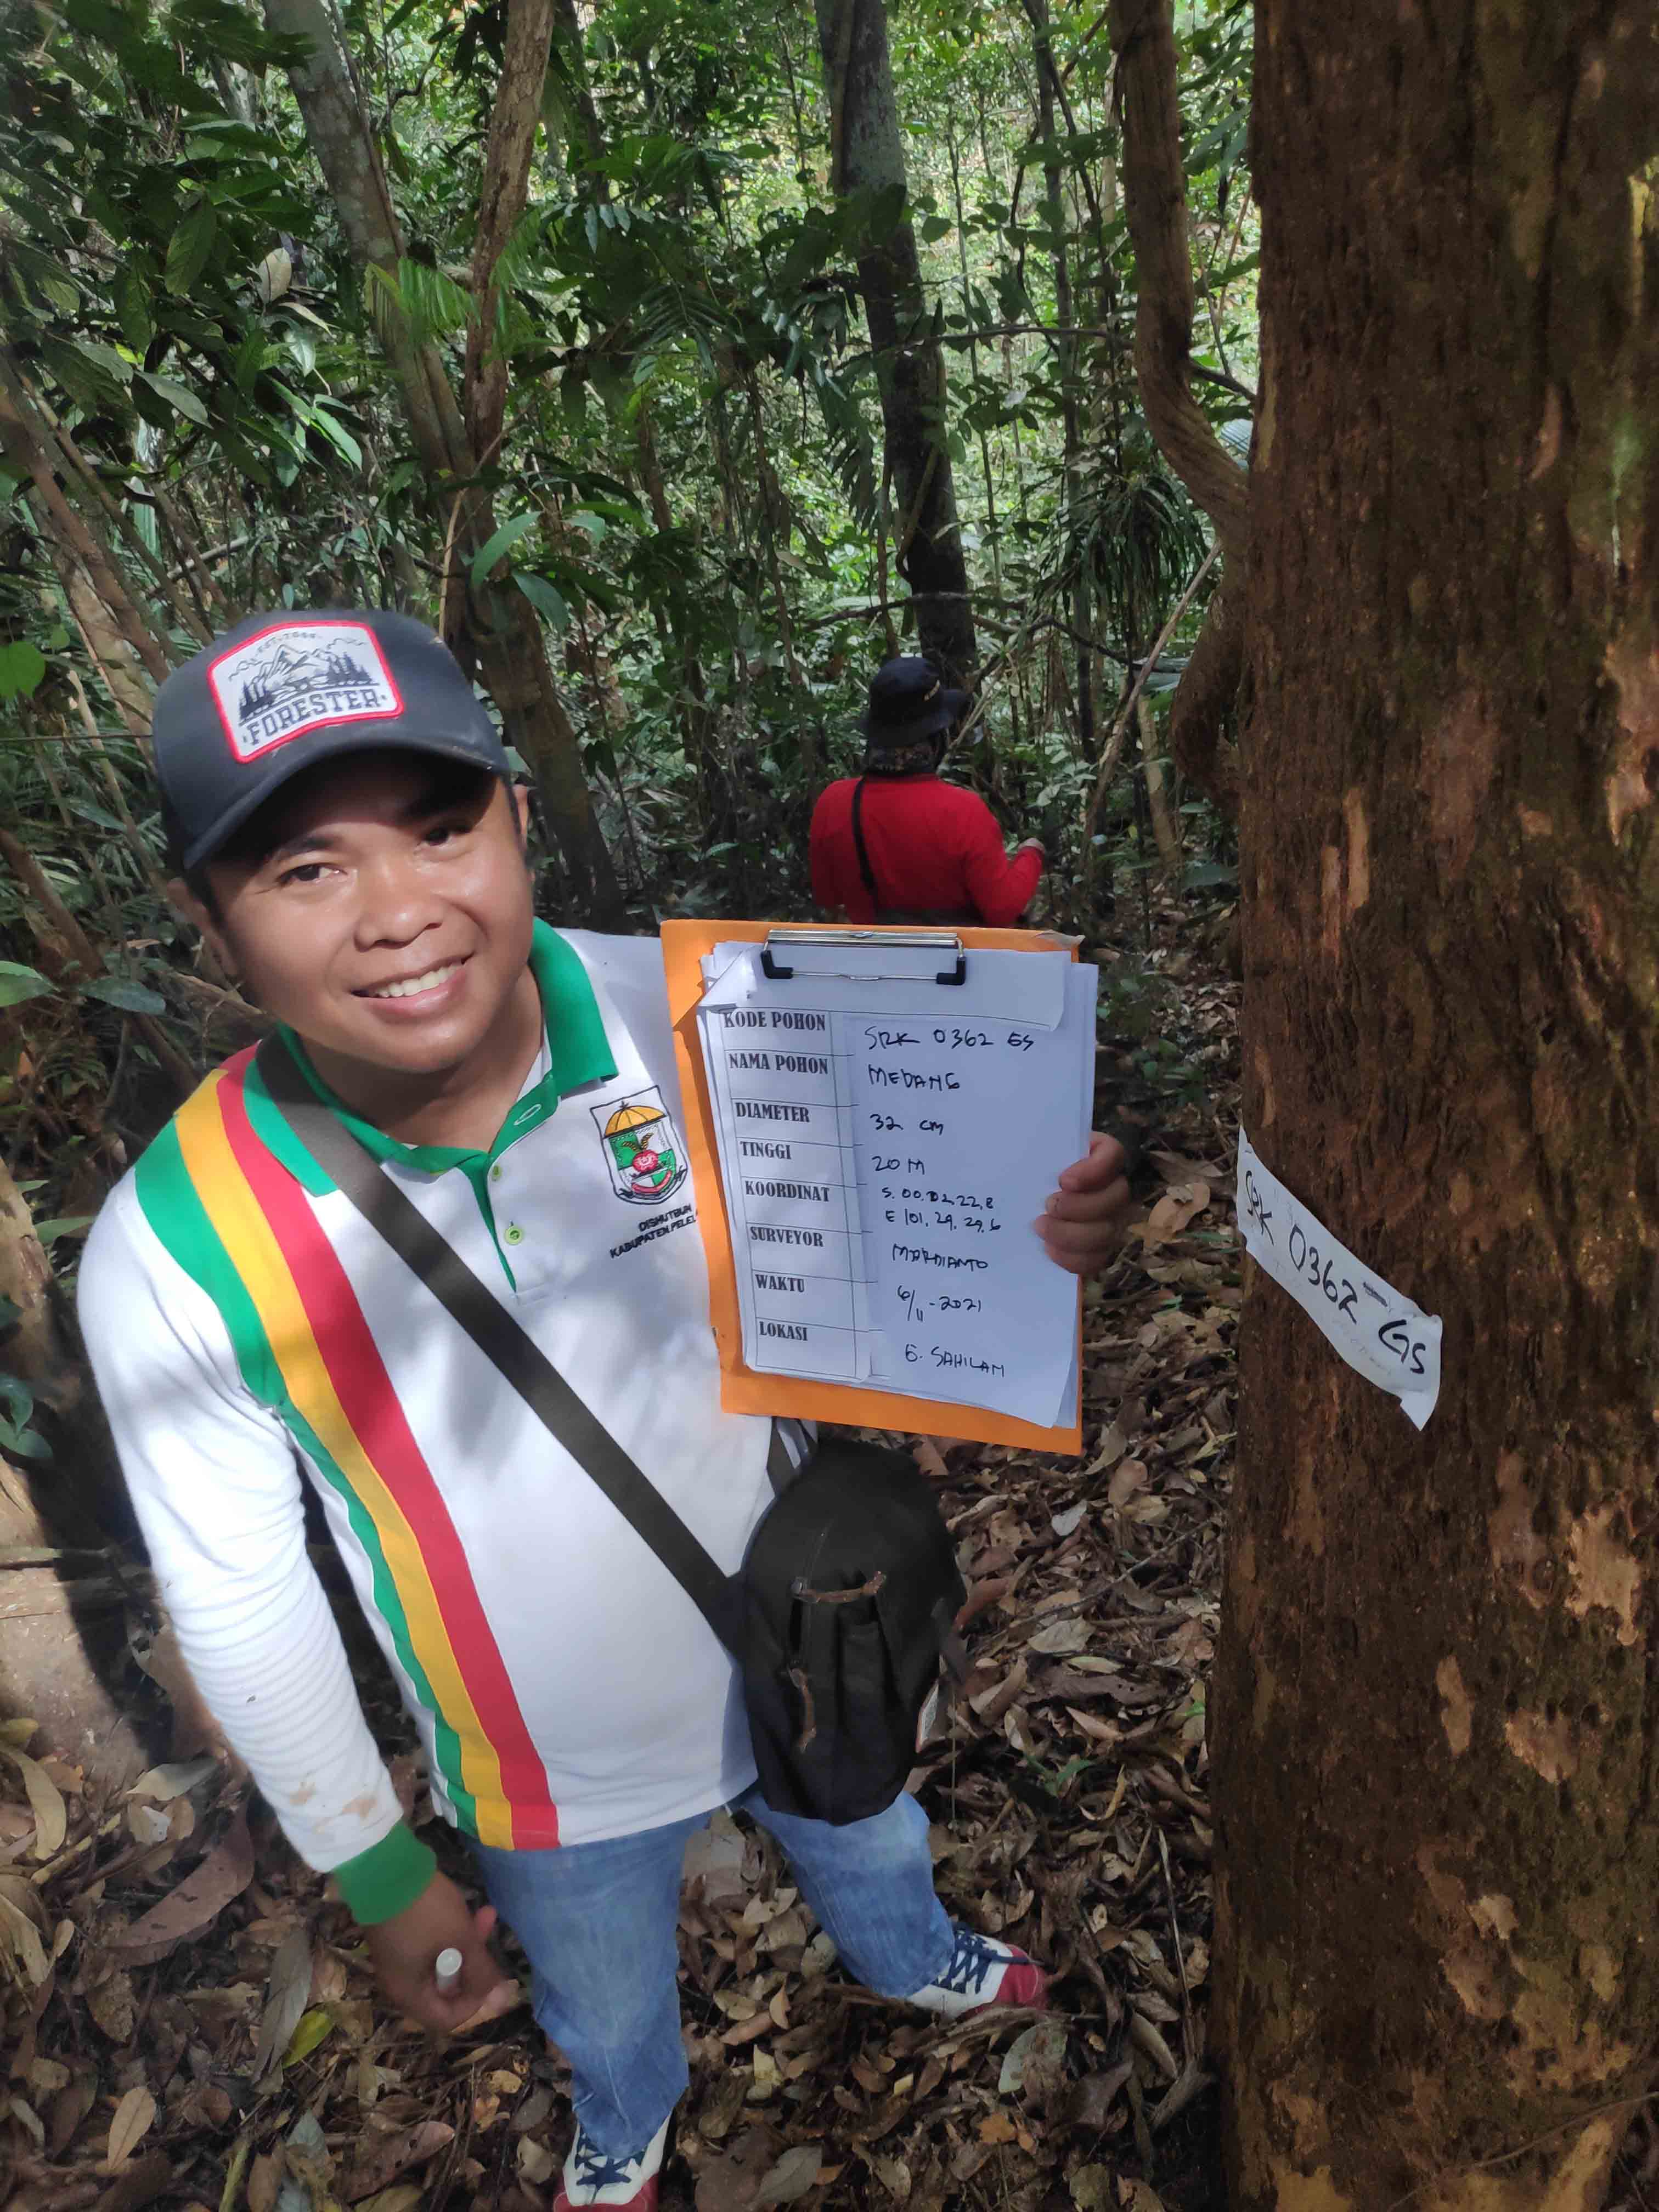 FORESTER
DISHUTBUN
KABUPATEN PELEL
KODE POHON SRK 0362 ES
NAMA POHON MEDANG
DIAMETER 32 cm
TINGGI 20 M
KOORDINAT S. 00. 02. 22. 8
E 101. 29. 29. 6
SURVEYOR MARDIANTO
WAKTU 6/11-2021
LOKASI G. SAHILAN
SRK 0362 - GS